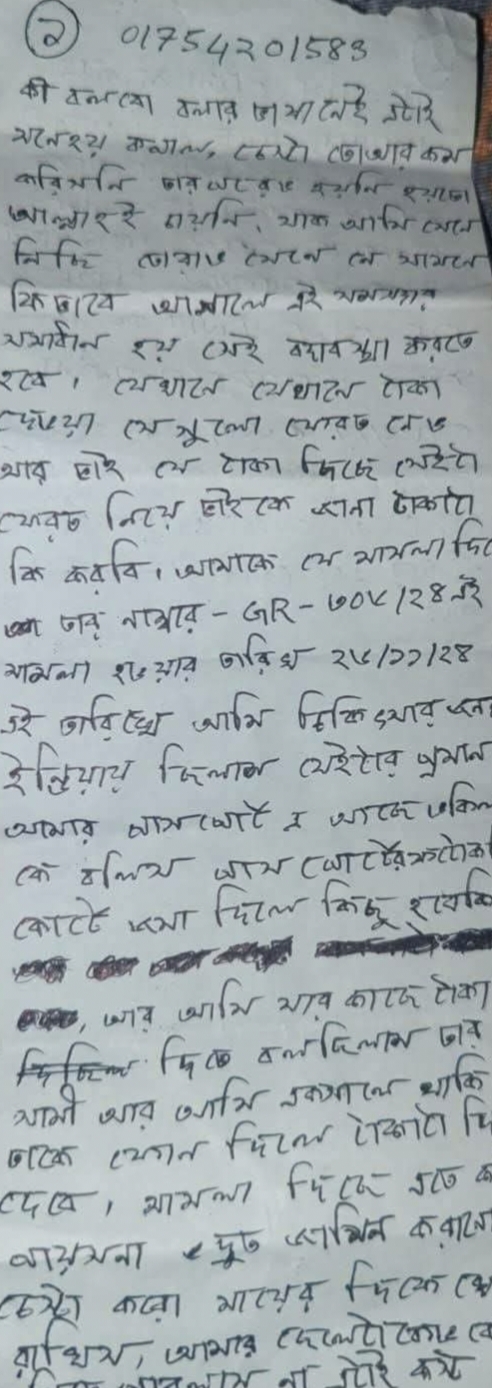 ২ 01754201583
কী বলবো বলার ভাষা নেই এটাই
মনেহয় কপাল, চেষ্টা তো আর কম
করিসনি তার পরেও হয়নি হয়তো
আল্লাহই চায়নি, যাক আমি মেনে
নিছি তোরাও মেনে নে সামনে
কিভাবে আগালে এই সমস্যার
সমাধান হয় সেই ব্যবস্থা করতে
হবে, যেখানে যেখানে টাকা
দেওয়া সেগুলো ফেরত নেও
আর ভাই যে টাকা দিছে সেইটা
ফেরত নিয়ে ভাইকে জানা টাকাটা
কি করবি, আমাকে যে মামলা দি
তার নাম্বার - GR - ৩০৮/২৪ এই
মামলা হওয়ার তারিখ ২৮/১১/২৪
এই তারিখে আমি চিকিৎসার জন্য
ইন্ডিয়ায় ছিলাম সেইটার প্রমান
আমার পাসপোর্ট এ আছে উকিল
কে বলিস পাসপোর্টের ফটোক
কোর্টে জমা দিলে কিছু হবে কি
, আর আমি যার কাছে টাকা
দিতে বলছিলাম তার
স্বামী আর আমি একসাথে থাকি
তাকে ফোন দিলে টাকাটা দি
দেবে, মামলা দিছে এতে ক
দ্রুত জামিন করানো
চেষ্টা করো মায়ের দিকে খে
রাখিস, আমার ছেলেটা
পারলাম না এটাই কষ্ট